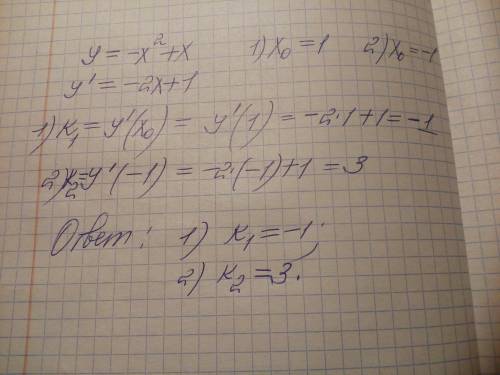 y = -x² + x 1) x₀ = 1 2) x₀ = -1
y' = -2x + 1
1) K₁ = y'(x₀) = y'(1) = -2·1 + 1 = -1
2) K₂ = y'(-1) = -2·(-1) + 1 = 3
Ответ: 1) K₁ = -1;
2) K₂ = 3.